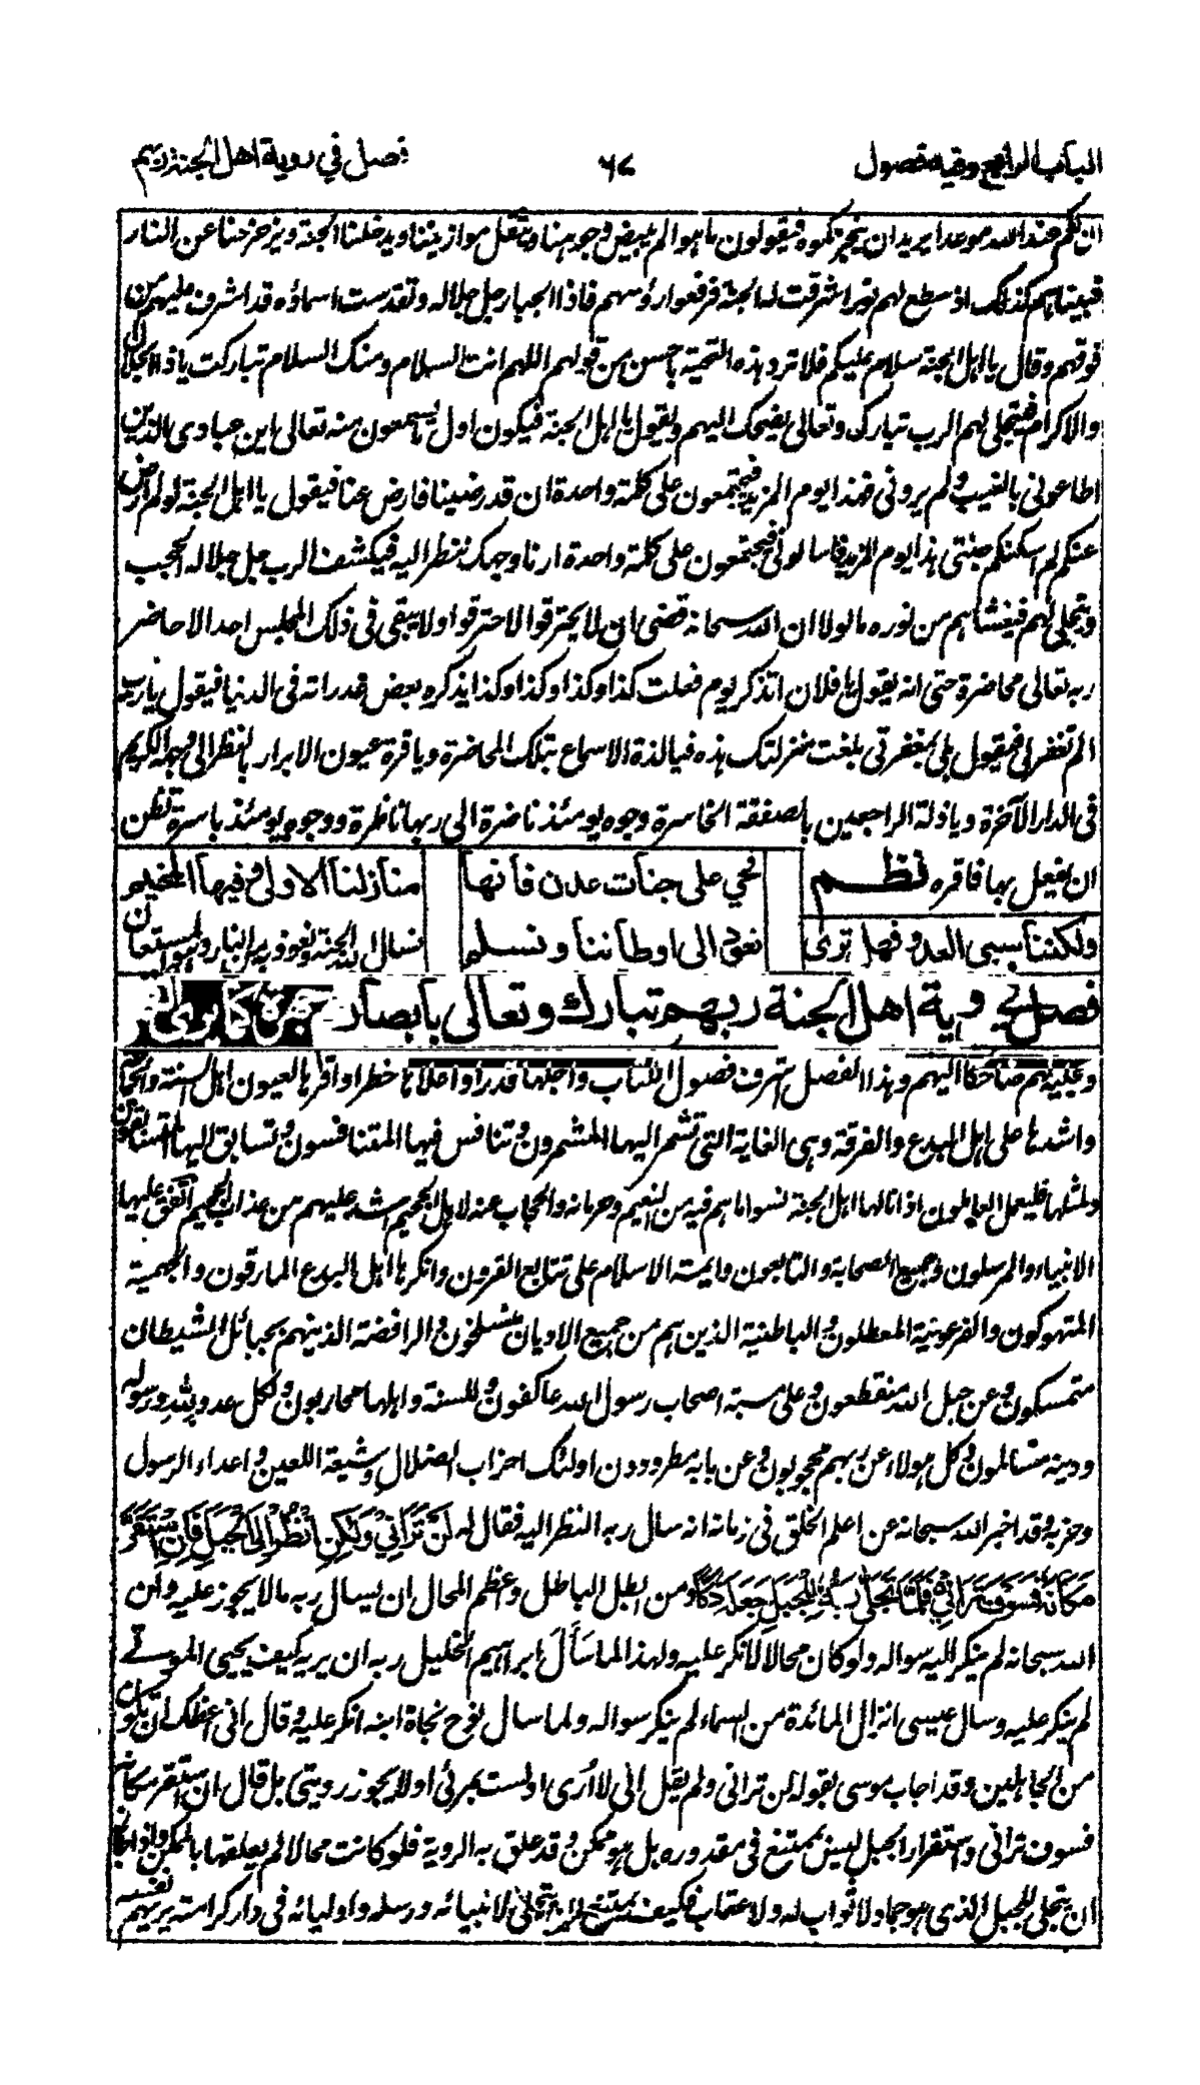 الباب الرابع وفيه فصول
٦٧
فصل في روية اهل الجنة ربهم
ان لكم عند الله موعدا يريد ان ينجزكموه فيقولون ما هو الم يبيض وجوهنا ويثقل موازيننا ويدخلنا الجنة ويزحزحنا عن النار
فبيناهم كذلك اذ سطع لهم نور اشرقت له الجنة فرفعوا رؤسهم فاذا الجبار جل جلاله وتقدست اسماؤه قد اشرف عليهم من
فوقهم وقال يا اهل الجنة سلام عليكم فلا ترد هذه التحية باحسن من قولهم اللهم انت السلام ومنك السلام تباركت يا ذا الجلال
والاكرام فيتجلى لهم الرب تبارك وتعالى يضحك اليهم ويقول يا اهل الجنة فيكون اول ما يسمعون منه تعالى اين عبادى الذين
اطاعونى بالغيب ولم يرونى فهذا يوم المزيد فيجتمعون على كلمة واحدة ان قد رضينا فارض عنا فيقول يا اهل الجنة لو لم ارض
عنكم لم اسكنكم جنتى هذا يوم المزيد فاسالونى فيجتمعون على كلمة واحدة ارنا وجهك ننظر اليه فيكشف الرب جل جلاله الحجب
ويتجلى لهم فيغشاهم من نوره ما لولا ان الله سبحانه قضى ان لا يحترقوا لاحترقوا ولا يبقى فى ذلك المجلس احد الا حاضر
ربه تعالى محاضرة حتى انه يقول يا فلان اتذكر يوم فعلت كذا وكذا وكذا وكذا يذكره ببعض غدراته فى الدنيا فيقول يارب
الم تغفر لى فيقول بلى بمغفرتى بلغت منزلتك هذه فيا لذة الاسماع بتلك المحاضرة ويا قرة عيون الابرار بالنظر الى وجهه الكريم
فى الدار الآخرة ويا ذلة الراجعين بالصفقة الخاسرة وجوه يومئذ ناضرة الى ربها ناظرة ووجوه يومئذ باسرة تظن
ان يفعل بها فاقره نظم فحي على جنات عدن فانها منازلنا الاولى وفيها المخيم
ولكننا سبى العدو فهل ترى نعود الى اوطاننا ونسلم نسال الله الجنة ونعوذ به من النار وهو المستعان
فصل في روية اهل الجنة ربهم تبارك وتعالى بابصارهم
وتجليه لهم ضاحكا اليهم وهذا الفصل اشرف فصول الكتاب واجلها قدرا واعلاها خطرا واقرها لعيون اهل السنة والجماعة
واشدها على اهل البدع والفرقة وهى الغاية التى تشمر اليها المشمرون وتنافس فيها المتنافسون وتسابق اليها المتسابقون
ولمثلها فليعمل العاملون اذا نالها اهل الجنة نسوا ما هم فيه من النعيم وحرمانه والحجاب عنه لاهل الجحيم اشد عليهم من عذاب الجحيم اتفق عليها
الانبياء والمرسلون وجميع الصحابة والتابعون وايمة الاسلام على تتابع القرون وانكرها اهل البدع المارقون والجهمية
المتهوكون والفرعونية المعطلون والباطنية الذين هم من جميع الاديان منسلخون والرافضة الذين هم بحبائل الشيطان
متمسكون وعن حبل الله منقطعون وعلى مسبة اصحاب رسول الله عاكفون وللسنة واهلها محاربون ولكل عدو لله ورسوله
ودينه مسالمون وكل هولاء عن ربهم محجوبون وعن بابه مطرودون اولئك احزاب الضلال وشيعة اللعين واعداء الرسول
وحزبه وقد اخبر الله سبحانه عن اعلم الخلق فى زمانه انه سال ربه النظر اليه فقال له لَنْ تَرَانِي وَلَكِنِ انْظُرْ إِلَى الْجَبَلِ فَإِنِ اسْتَقَرَّ
مَكَانَهُ فَسَوْفَ تَرَانِي فَلَمَّا تَجَلَّى رَبُّهُ لِلْجَبَلِ جَعَلَهُ دَكًّا ومن ابطل الباطل وعظم المحال ان يسال ربه ما لا يجوز عليه وان
الله سبحانه لم ينكر اليه سواله ولو كان محالا لانكر عليه ولهذا لما سَأَلَ ابراهيم الخليل ربه ان يريه كيف يحيى الموتى
لم ينكر عليه وسال عيسى انزال المائدة من السماء لم ينكر سواله ولما سال نوح نجاة ابنه انكر عليه وقال انى اعظك ان تكون
من الجاهلين وقد اجاب موسى بقوله لن ترانى ولم يقل انى لا أرى او لست بمرئى اولا يجوز رويتى بل قال ان استقر مكانه
فسوف ترانى واستقرار الجبل ليس بممتنع فى مقدوره بل هو ممكن وقد علق به الروية فلو كانت محالا لم يعلقها بالممكن واذا جاز
ان يتجلى للجبل الذى هو جماد لا ثواب له ولا عقاب فكيف يمتنع ان يتجلى لانبيائه ورسله واوليائه فى دار كرامته يريهم نفسه